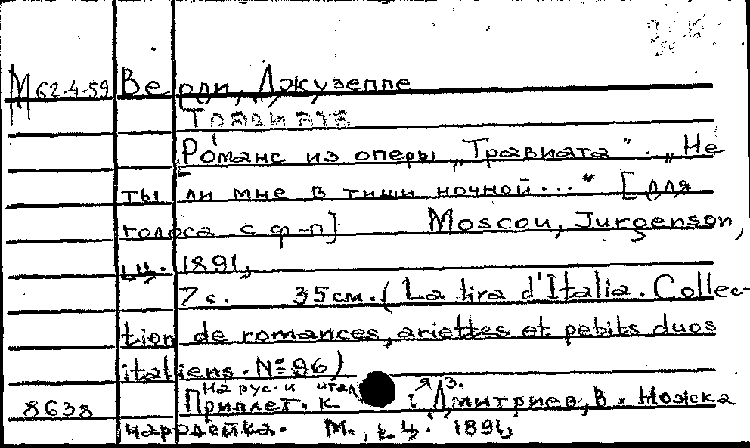 М 62-4-59 Верди, Джузеппе
Травиата
Романс из оперы „Травиата". „Не
ты ли мне в тиши ночной..." [для
голоса с ф-п] Moscou, Jurgenson,
ц. 1891,
7 с. 35 см. (La lira d'Italia. Collec-
tion de romances, ariettes et petits duos
italiens. №86)
На рус. и итал. яз.
8638 Приплет. к : Дмитриев, В. Ножка
М., ц. 1891,